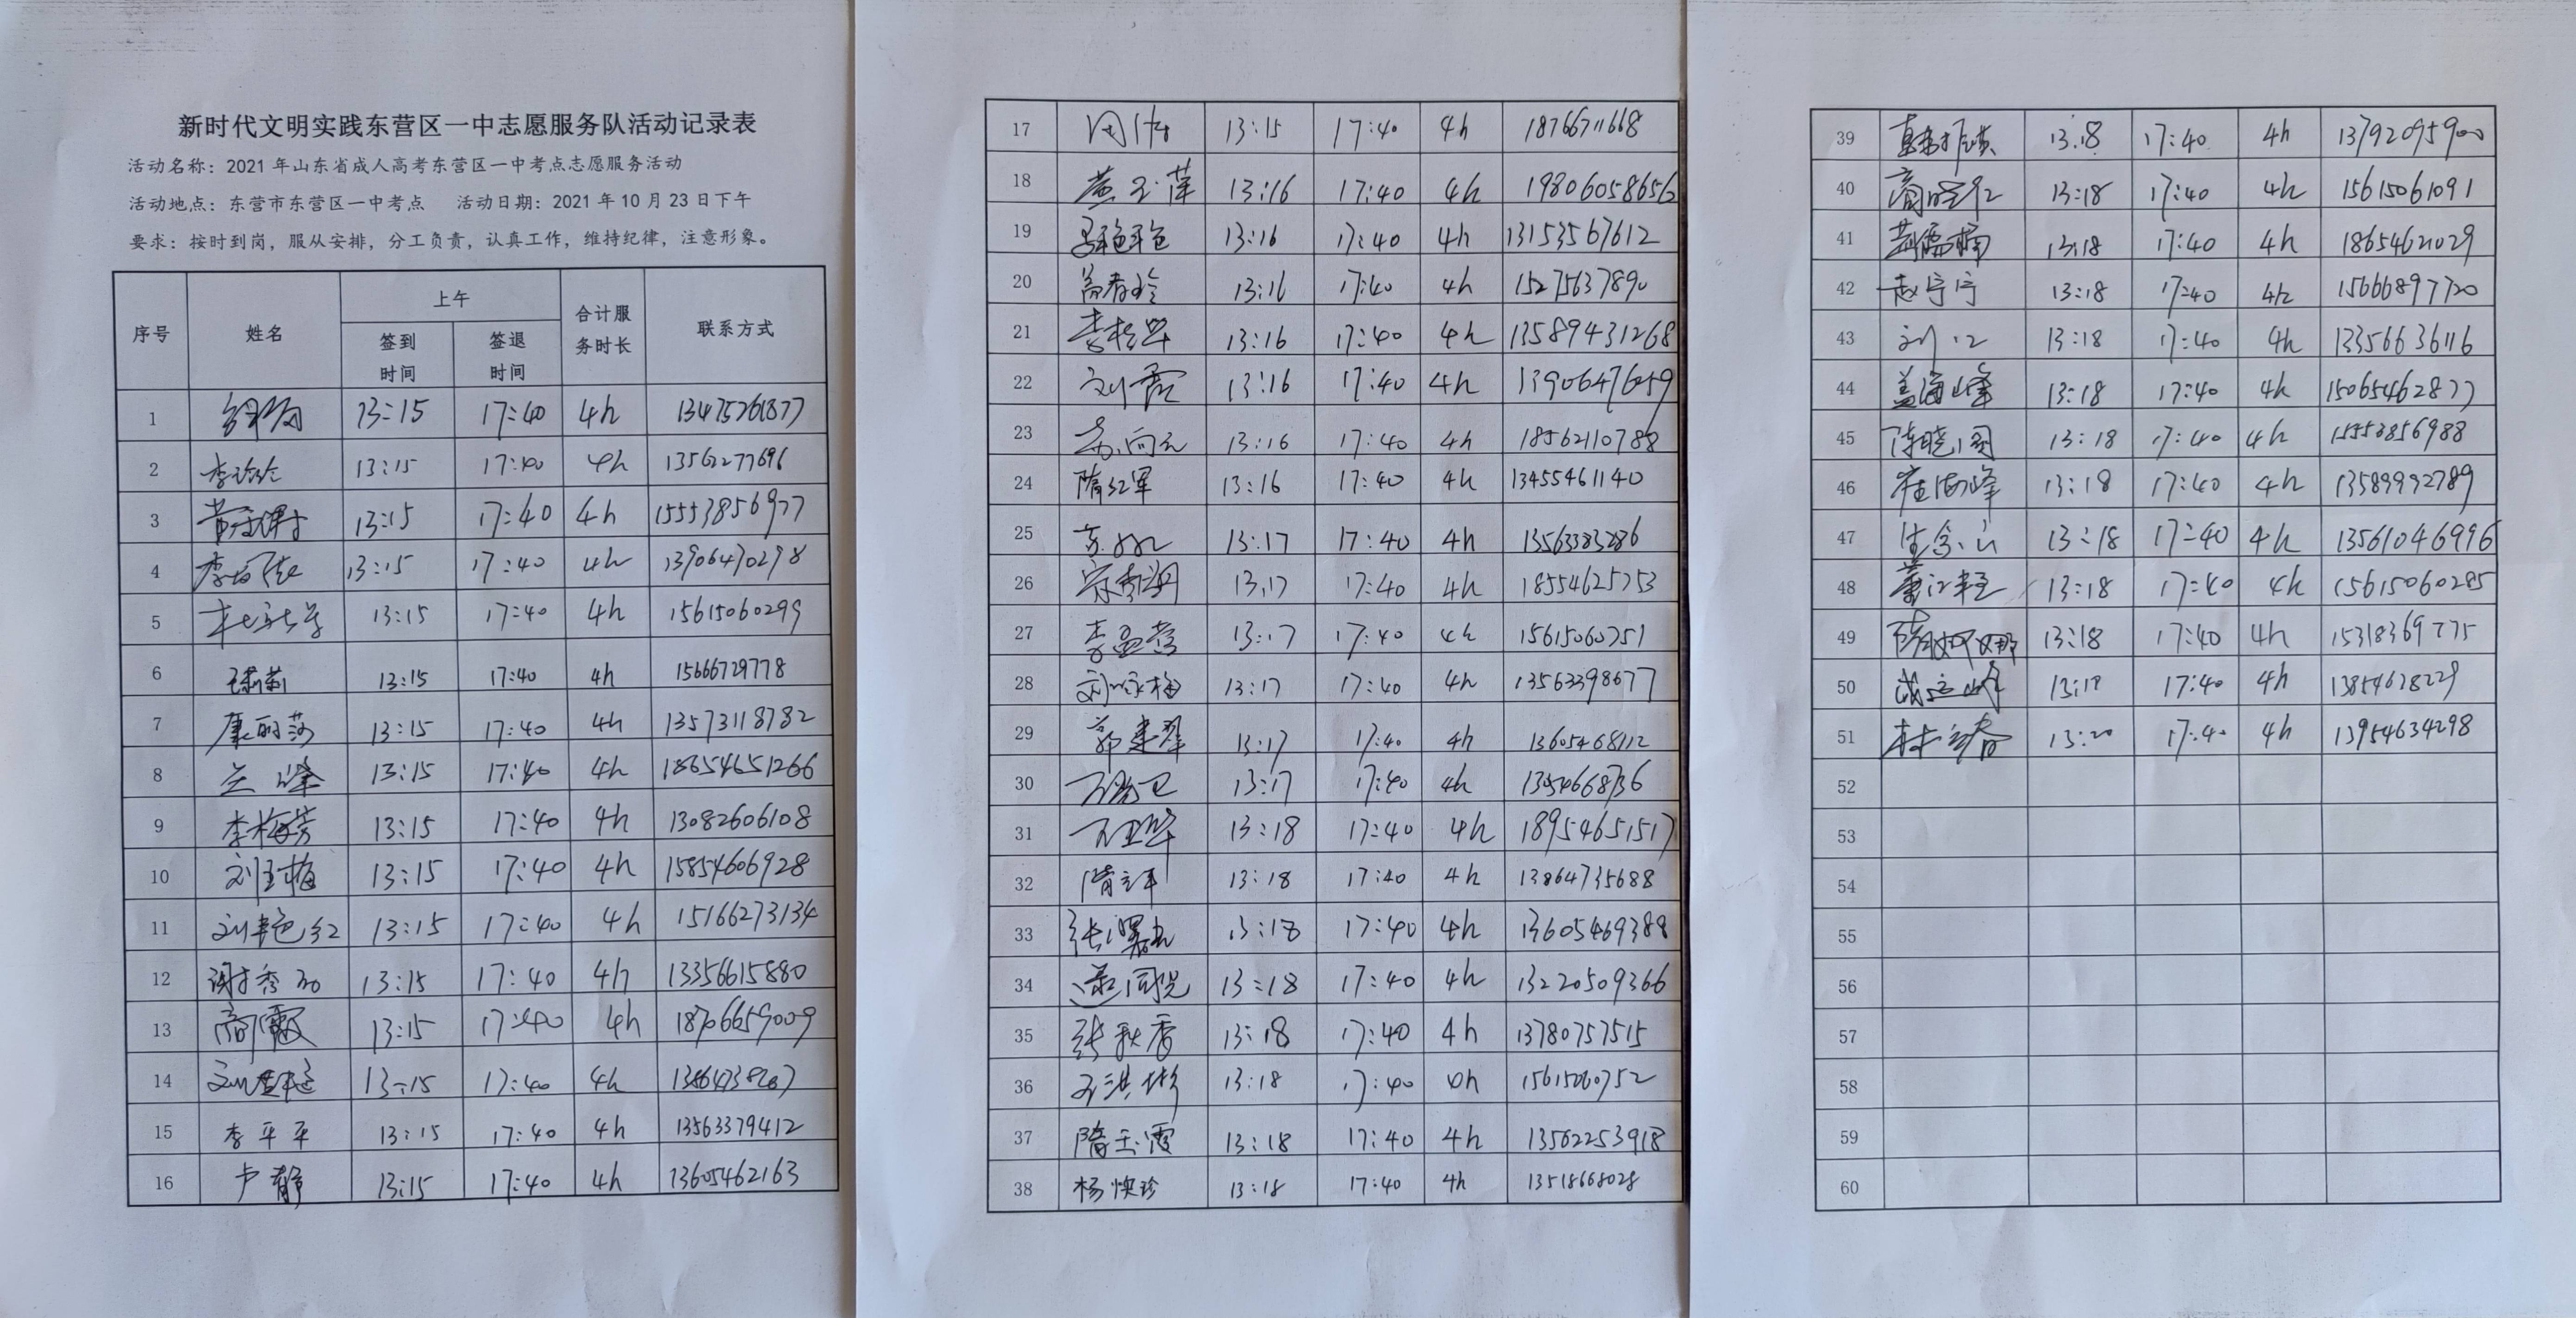 新时代文明实践东营区一中志愿服务队活动记录表
活动名称：2021年山东省成人高考东营区一中考点志愿服务活动
活动地点：东营市东营区一中考点 活动日期：2021年10月23日下午
要求：按时到岗，服从安排，分工负责，认真工作，维持纪律，注意形象。
序号 姓名 上午 合计服务时长 联系方式
签到时间 签退时间
1 13:15 17:40 4h 13475261877
2 李玲玲 13:15 17:40 4h 13562277696
3 13:15 17:40 4h 15553856977
4 13:15 17:40 4h 13906470298
5 13:15 17:40 4h 15615060299
6 王莉莉 13:15 17:40 4h 15666729778
7 康丽莎 13:15 17:40 4h 13573118782
8 兰峰 13:15 17:40 4h 18654651266
9 李梅芳 13:15 17:40 4h 13082606108
10 刘玉梅 13:15 17:40 4h 15854606928
11 刘艳红 13:15 17:40 4h 15166273134
12 谢秀 13:15 17:40 4h 13356615880
13 商霞 13:15 17:40 4h 18706659009
14 13:15 17:40 4h
15 李平平 13:15 17:40 4h 13563379412
16 卢静 13:15 17:40 4h 13605462163
17 周伟 13:15 17:40 4h 18766711668
18 黄玉萍 13:16 17:40 4h 19806058656
19 马艳艳 13:16 17:40 4h 13153567612
20 春玲 13:16 17:40 4h 15275637890
21 13:16 17:40 4h 13589431268
22 刘霞 13:16 17:40 4h 13906476059
23 向元 13:16 17:40 4h 18562110788
24 隋红军 13:16 17:40 4h 13455461140
25 13:17 17:40 4h 13563383286
26 宋秀娟 13:17 17:40 4h 18554625753
27 李孟莺 13:17 17:40 4h 15615060751
28 刘咏梅 13:17 17:40 4h 13563398677
29 郭建翠 13:17 17:40 4h 13605468112
30 13:17 17:40 4h 13954668736
31 13:18 17:40 4h 18954651517
32 隋立军 13:18 17:40 4h 13864735688
33 张曙 13:18 17:40 4h 13605469388
34 13:18 17:40 4h 13220509366
35 张秋香 13:18 17:40 4h 13780757515
36 王洪彬 13:18 17:40 4h 15615060752
37 隋玉霞 13:18 17:40 4h 13562253918
38 杨焕珍 13:18 17:40 4h 13518668028
39 13:18 17:40 4h 13792095900
40 商晓红 13:18 17:40 4h 15615061091
41 13:18 17:40 4h 18654621029
42 赵宁宁 13:18 17:40 4h 15666897720
43 刘江 13:18 17:40 4h 13356636116
44 盖海峰 13:18 17:40 4h 15065462877
45 陈晓 13:18 17:40 4h 15553856988
46 崔海峰 13:18 17:40 4h 13589992789
47 生念 13:18 17:40 4h 13561046996
48 董江艳 13:18 17:40 4h 15615060285
49 13:18 17:40 4h 15318369775
50 成立峰 13:18 17:40 4h 13854628229
51 林立春 13:20 17:40 4h 13954634298
52
53
54
55
56
57
58
59
60